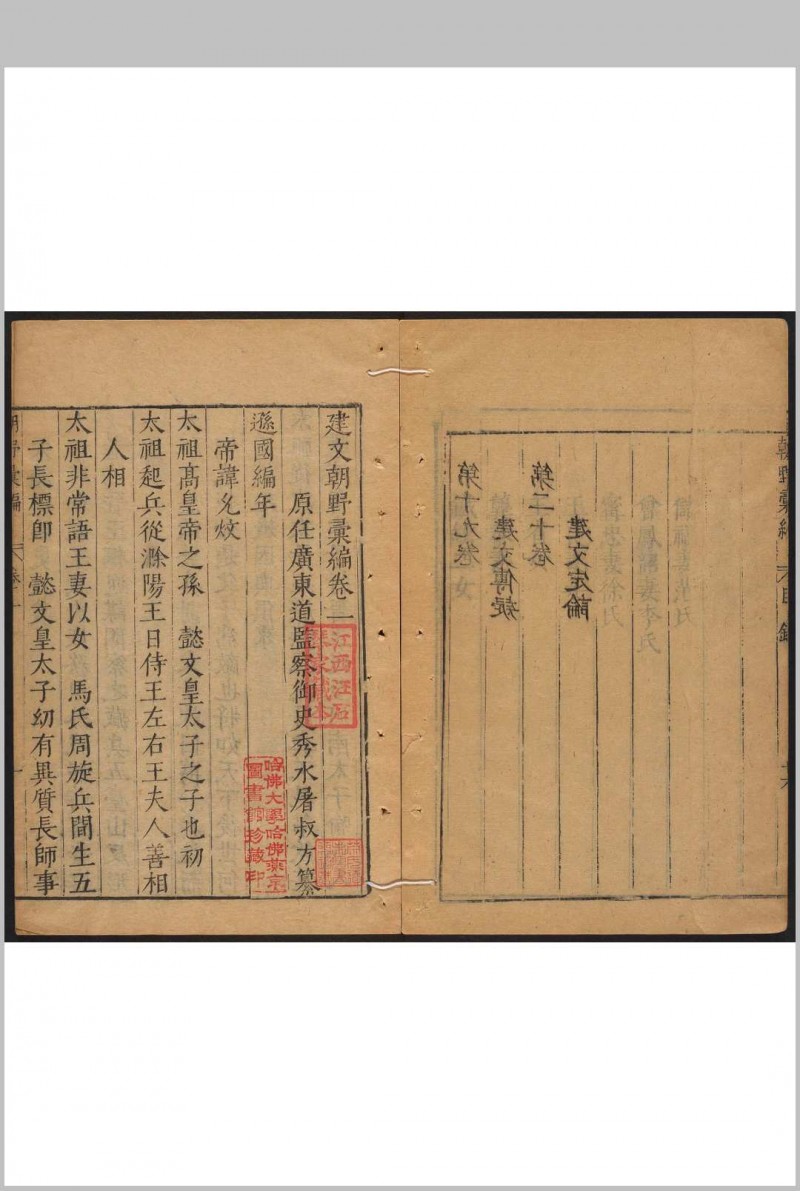 朝野彙編 目錄
第十九卷
建文傳疑
第二十卷
建文定論
建文朝野彙編卷一
江西汪石
琴家藏本
原任廣東道監察御史秀水屠叔方纂
哈佛大學哈佛燕京
圖書館珍藏印
遜國編年
帝諱允炆
太祖高皇帝之孫 懿文皇太子之子也初
太祖起兵從滁陽王日侍王左右王夫人善相
人相
太祖非常語王妻以女 馬氏周旋兵間生五
子長標卽 懿文皇太子幼有異質長師事
朝野彙編 卷一 一